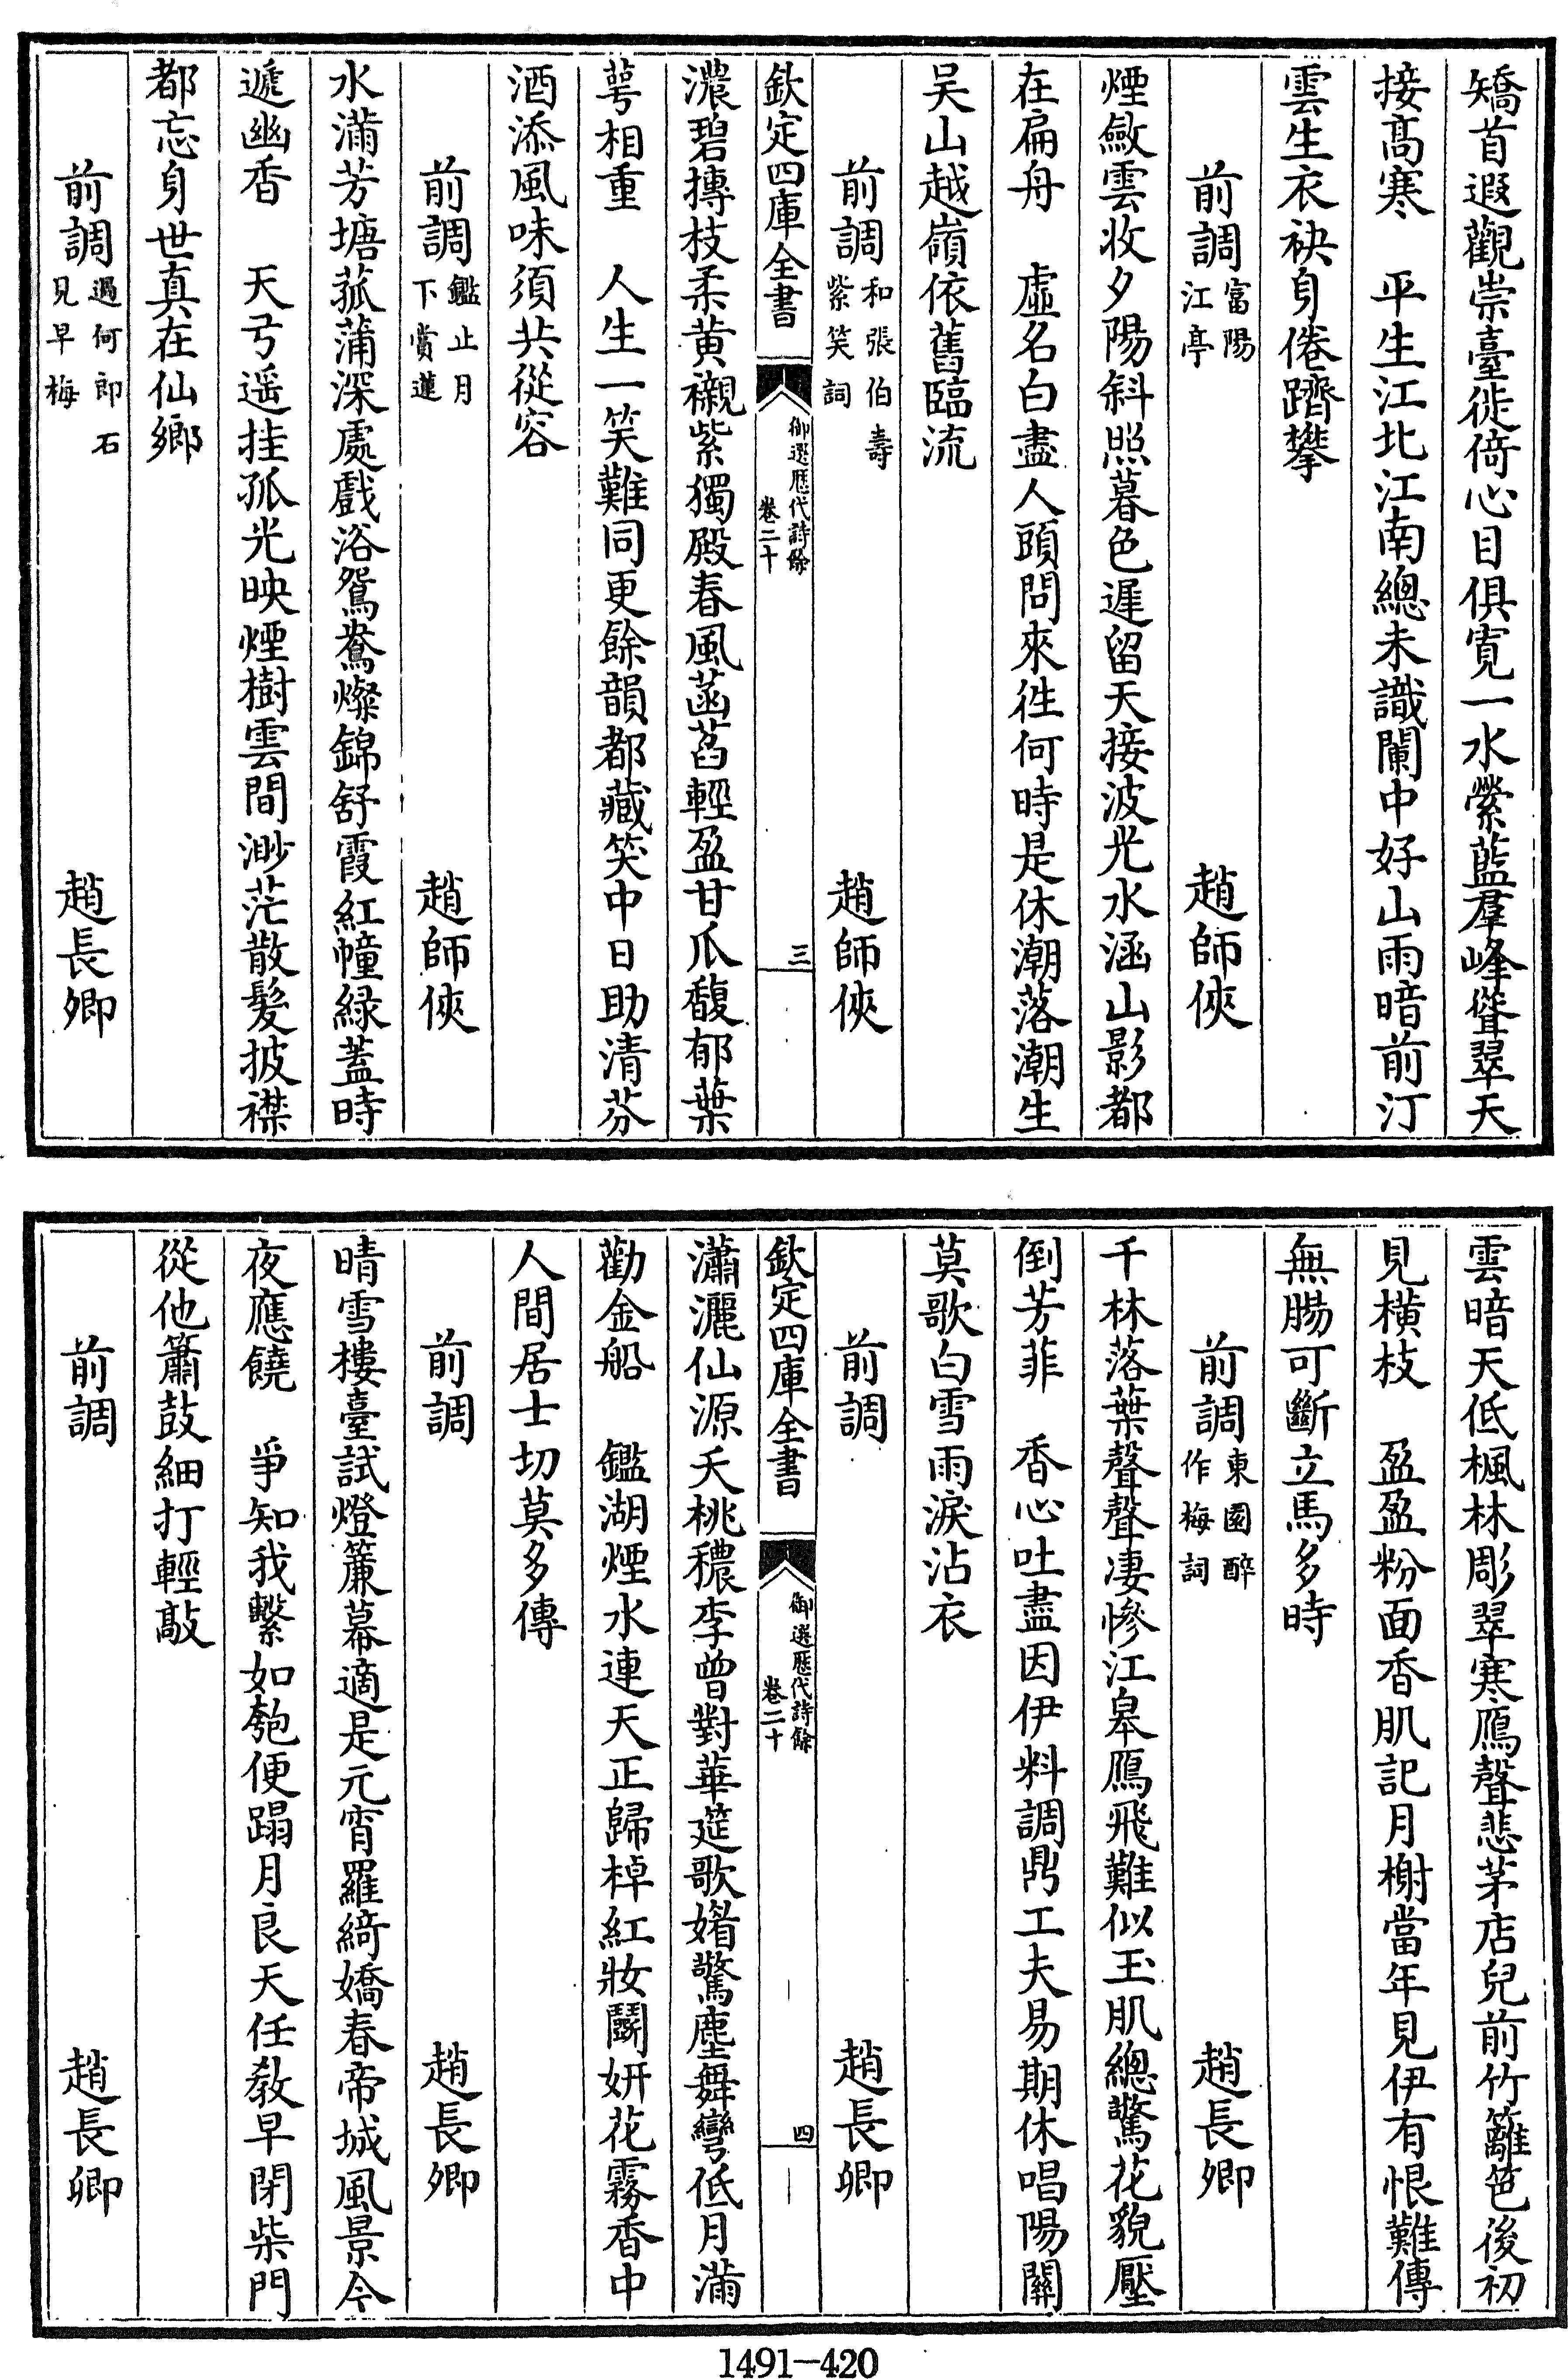 矯首遐觀崇臺徙倚心目俱寛一水縈藍羣峰聳翠天
接髙寒　平生江北江南總未識闌中好山雨暗前汀
雲生衣袂身倦躋攀
前調富陽江亭　趙師俠
煙斂雲收夕陽斜照暮色遲留天接波光水涵山影都
在扁舟　虛名白盡人頭問來徃何時是休潮落潮生
吴山越嶺依舊臨流
前調和張伯壽紫笑詞　趙師俠
欽定四庫全書　御選歴代詩餘卷二十　三
濃碧摶枝柔黄襯紫獨殿春風菡萏輕盈甘瓜馥郁葉
萼相重　人生一笑難同更餘韻都藏笑中日助清芬
酒添風味須共從容
前調鑑止月下賞蓮　趙師俠
水滿芳塘菰蒲深處戲浴鴛鴦燦錦舒霞紅幢緑蓋時
遞幽香　天弓遥挂孤光映煙樹雲間渺茫散髮披襟
都忘身世真在仙鄉
前調過何郎石見早梅　趙長卿
雲暗天低楓林彫翠寒鴈聲悲茅店兒前竹籬笆後初
見横枝　盈盈粉面香肌記月榭當年見伊有恨難傳
無腸可斷立馬多時
前調東園醉作梅詞　趙長卿
千林落葉聲聲凄慘江皋鴈飛難似玉肌總驚花貌壓
倒芳菲　香心吐盡因伊料調鼎工夫易期休唱陽關
莫歌白雪雨淚沾衣
前調　趙長卿
欽定四庫全書　御選歴代詩餘卷二十　四
瀟灑仙源夭桃穠李曾對華筵歌媠驚塵舞彎低月滿
勸金船　鑑湖煙水連天正歸棹紅妝鬭妍花霧香中
人間居士切莫多傳
前調　趙長卿
晴雪樓臺試燈簾幕適是元宵羅綺嬌春帝城風景今
夜應饒　爭知我繫如匏便蹋月良天任教早閉柴門
從他簫鼓細打輕敲
前調　趙長卿
1491—420